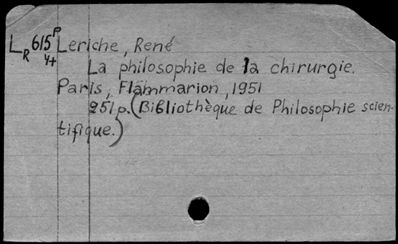 LR 615P Leriche, René
4+
La philosophie de la chirurgie.
Paris, Flammarion, 1951
251p. (Bibliothèque de Philosophie scien-
tifique.)